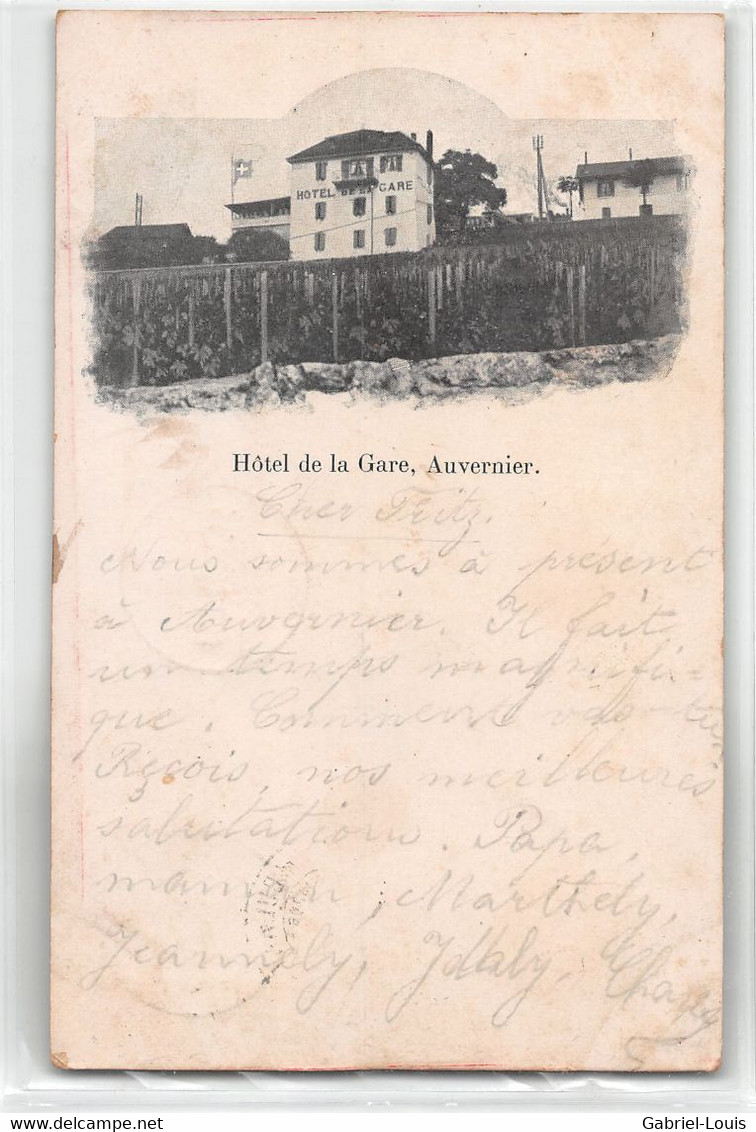 HOTEL DE LA GARE
Hôtel de la Gare, Auvernier.
Cher Fritz.
Nous sommes à présent
à Auvernier. Il fait
un temps magnifi-
que. Comment vas-tu
Reçois nos meilleures
salutation. Papa,
maman, Marthely,
Jeannely, Idaly,
delcampe.net
Gabriel-Louis